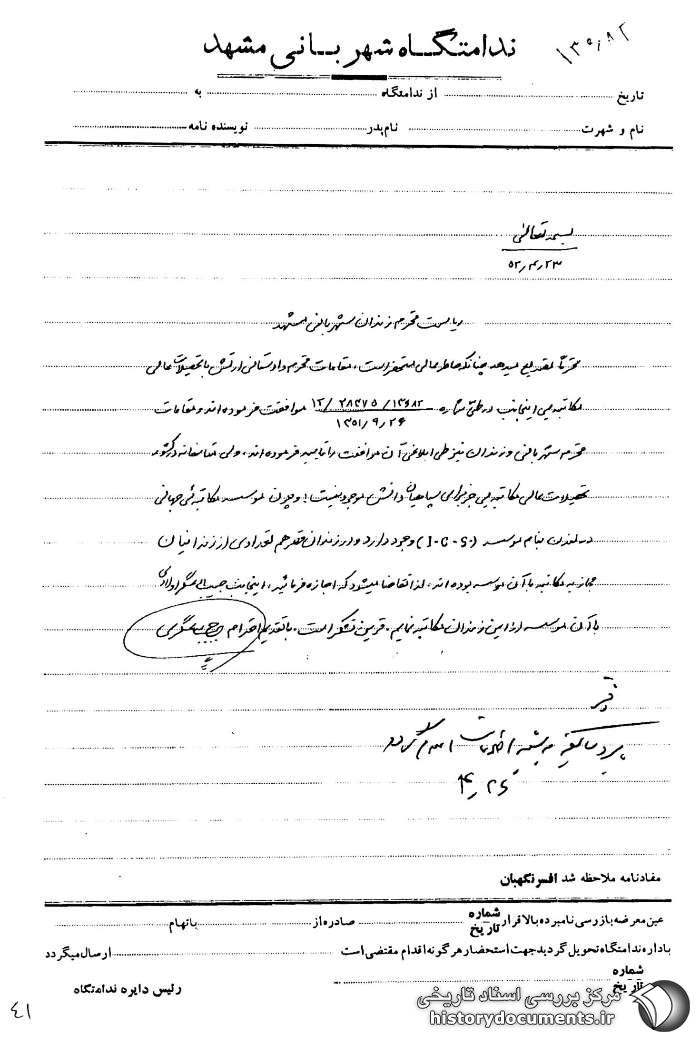 ۱۳۵/۸۲
ندامتگاه شهربانی مشهد
تاریخ از ندامتگاه به
نام و شهرت نام پدر نویسنده نامه
بسمه تعالی
۵۲/۴/۲۳
ریاست محترم زندان شهربانی مشهد
محترماً تصدیع میدهد چنانکه خاطر عالی مستحضر است، مقامات محترم دادستانی ارتش با تحصیلات عالی
مکاتبه‌یی اینجانب در طی شماره ۱۲/۲۸۳۷۵/۱۳۶۸۲ موافقت فرموده‌اند و مقامات
۱۳۵۱/۹/۲۶
محترم شهربانی و زندان نیز طی ابلاغی آن موافقت را تایید فرموده‌اند، ولی متاسفانه در کشور
تحصیلات عالی مکاتبه‌یی جز برای سپاهیان دانش موجود نیست؛ و چون موسسه مکاتبه‌ئی جهانی
در لندن بنام موسسه (I-C-S) وجود دارد و در زندان قصر هم تعدادی از زندانیان
مجاز به مکاتبه با آن موسسه بوده‌اند، لذا تقاضا میشود که اجازه فرمائید، اینجانب حبیب‌اله عسگراولادی
با آن موسسه از این زندان مکاتبه نمایم، قرین تشکر است. با تقدیم احترام حبیب عسگری
۴/۲۶
مفادنامه ملاحظه شد افسر نگهبان
عین معرضه بازرسی نامبرده بالا قرار شماره تاریخ صادره از باتهام
باداره ندامتگاه تحویل گردید جهت استحضار هر گونه اقدام مقتضی است ارسال میگردد
شماره
تاریخ رئیس دایره ندامتگاه
۴۱
مرکز بررسی اسناد تاریخی
historydocuments.ir